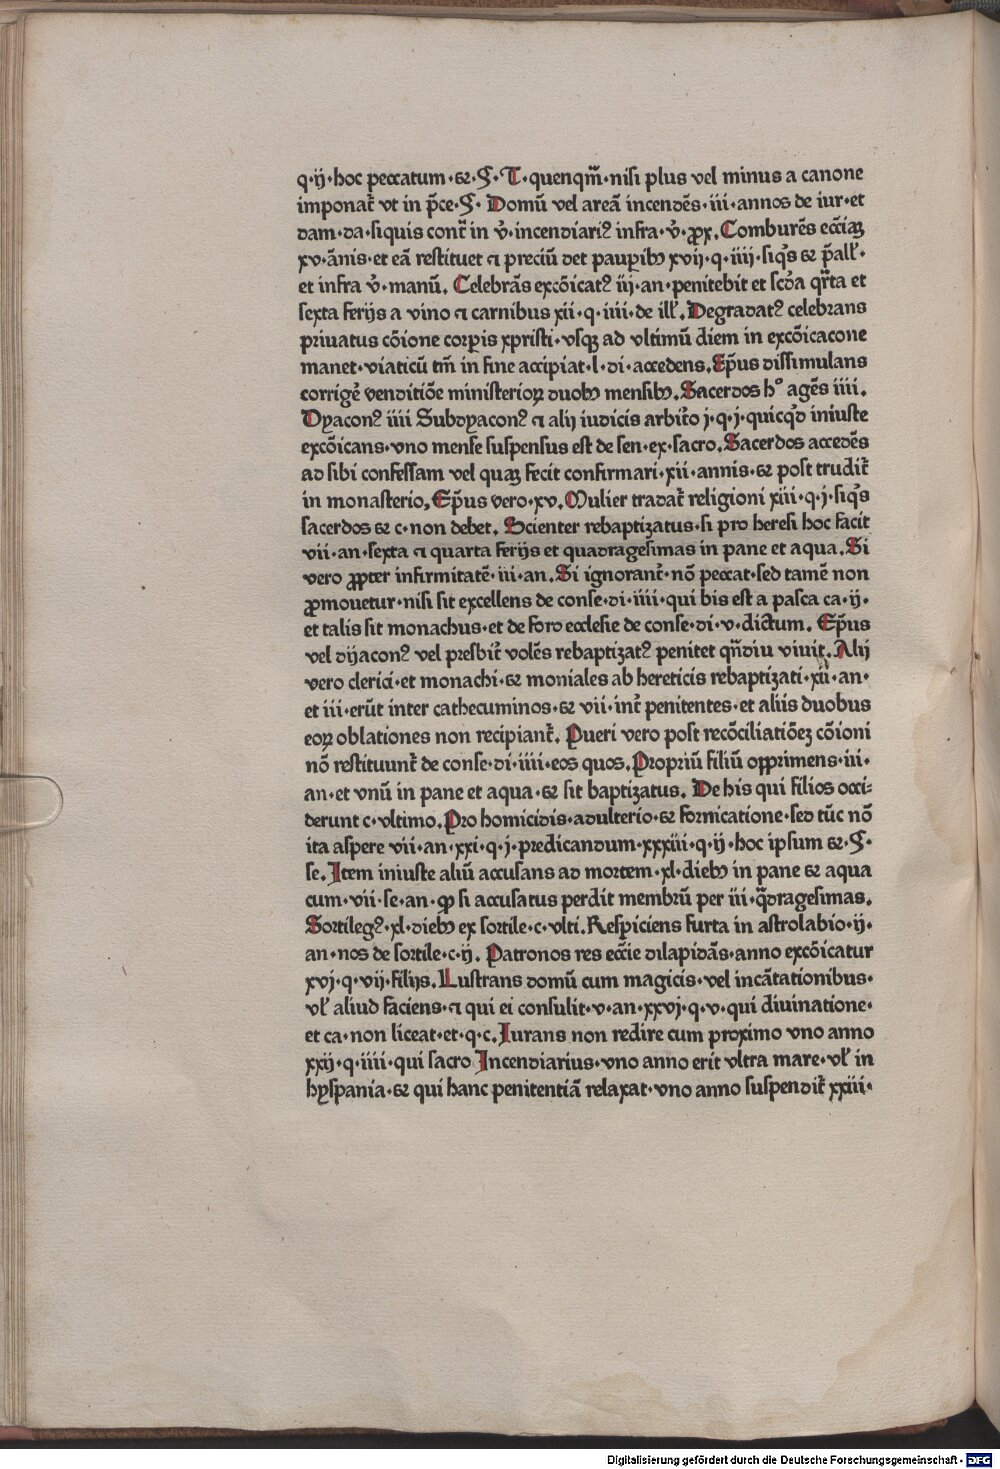 q·ij·hoc peccatum·&·§·T·quenqm̄·nisi plus vel minus a canone
imponat᷑ vt in p̄ce·§· Domū vel areā incendēs·iii·annos de iur·et
dam·da·siquis cont᷑ in v̓·incendiariꝰ infra·v̓·ꝓx. Comburēs ecc̄iaꝫ
xv·ānis·et eā restituet ⁊ preciū det pauꝑibꝫ xvij·q·iiij·siq̄s & p̄all̓·
et infra v̓·manū. Celebrās excōicatꝰ iij·an·penitebit et scd̄a qr̄ta et
sexta ferijs a vino ⁊ carnibus xii·q·iiii·de ill̓. Degradatꝰ celebrans
priuatus cōione corꝑis xpristi·vsqꝫ ad vltimū diem in excōicacone
manet·viaticū tm̄ in fine accipiat·l·di·accedens. Ep̄us dissimulans
corrigē venditiōe ministerioꝝ duobꝫ mensibꝫ. Sacerdos hᵒ agēs iiii.
Dyaconꝰ iiii Subdyaconꝰ ⁊ alij iudicis arbit̓o j·q·j·quicq̄d iniuste
excōicans·vno mense suspensus est de sen·ex·sacro. Sacerdos accedēs
ad sibi confessam vel quaꝫ fecit confirmari·xii·annis·& post trudit᷑
in monasterio, Ep̄us vero·xv. Mulier tradat᷑ religioni xiii·q·j·siq̄s
sacerdos & c·non debet. Scienter rebaptizatus·si pro heresi hoc facit
vii·an·sexta ⁊ quarta ferijs et quadragesimas in pane et aqua. Si
vero ꝓpter infirmitatē·iii·an. Si ignorant᷑·nō peccat·sed tamē non
ꝓmouetur·nisi sit excellens de conse·di·iiii·qui bis est a pasca ca·ij·
et talis sit monachus·et de foro ecclesie de conse·di·v·dictum. Ep̄us
vel dijaconꝰ vel presbit᷑ volēs rebaptizatꝰ penitet qn̄diu viuit. Alij
vero clerici·et monachi·& moniales ab hereticis rebaptizati·xii·an·
et iii·erūt inter cathecuminos·& vii·int᷑ penitentes·et aliis duobus
eoꝝ oblationes non recipiant᷑. Pueri vero post recōciliatiōeꝫ cōioni
nō restituunt᷑ de conse·di·iiii·eos quos. Propriū filiū opprimens·iii·
an·et vnū in pane et aqua·& sit baptizatus. De his qui filios occi⸗
derunt c·vltimo. Pro homicidis·adulterio·& fornicatione·sed tūc nō
ita aspere vii·an·xxi·q·j·predicandum·xxxiii·q·ij·hoc ipsum &·§·
se. Item iniuste aliū accusans ad mortem·xl·diebꝫ in pane & aqua
cum·vii·se·an·ꝙ si accusatus perdit membrū per iii·q̄dragesimas.
Sortilegꝰ·xl·diebꝫ ex sortile·c·vlti. Respiciens furta in astrolabio·ij·
an·nos de sortile·c·ij. Patronos res ecc̄ie dilapidās·anno excōicatur
xvj·q·vij·filijs. Lustrans domū cum magicis·vel incātationibus·
vl̓ aliud faciens·⁊ qui ei consulit·v·an·xxvj·q·v·qui diuinatione·
et ca·non liceat·et·q·c. Iurans non redire cum proximo vno anno
xxij·q·iiii·qui sacro Incendiarius·vno anno erit vltra mare·vl̓ in
hyspania·& qui hanc penitentiā relaxat·vno anno suspendit᷑ xxiii·
Digitalisierung gefördert durch die Deutsche Forschungsgemeinschaft - DFG